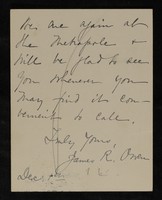 We are again at
the Metropole &
will be glad to see
you whenever you
may find it con-
venient to call.
Truly Yours,
James R.
Dec